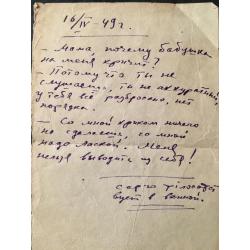 16/IV-49 г.
- Мама, почему бабушка
на меня кричит?
- Потому что ты не
слушаешь, ты не аккуратный,
у тебя всё разбросано, нет
порядка.
- Со мной криком ничего
не сделаешь, со мной
надо лаской. Меня
нельзя выводить из себя!